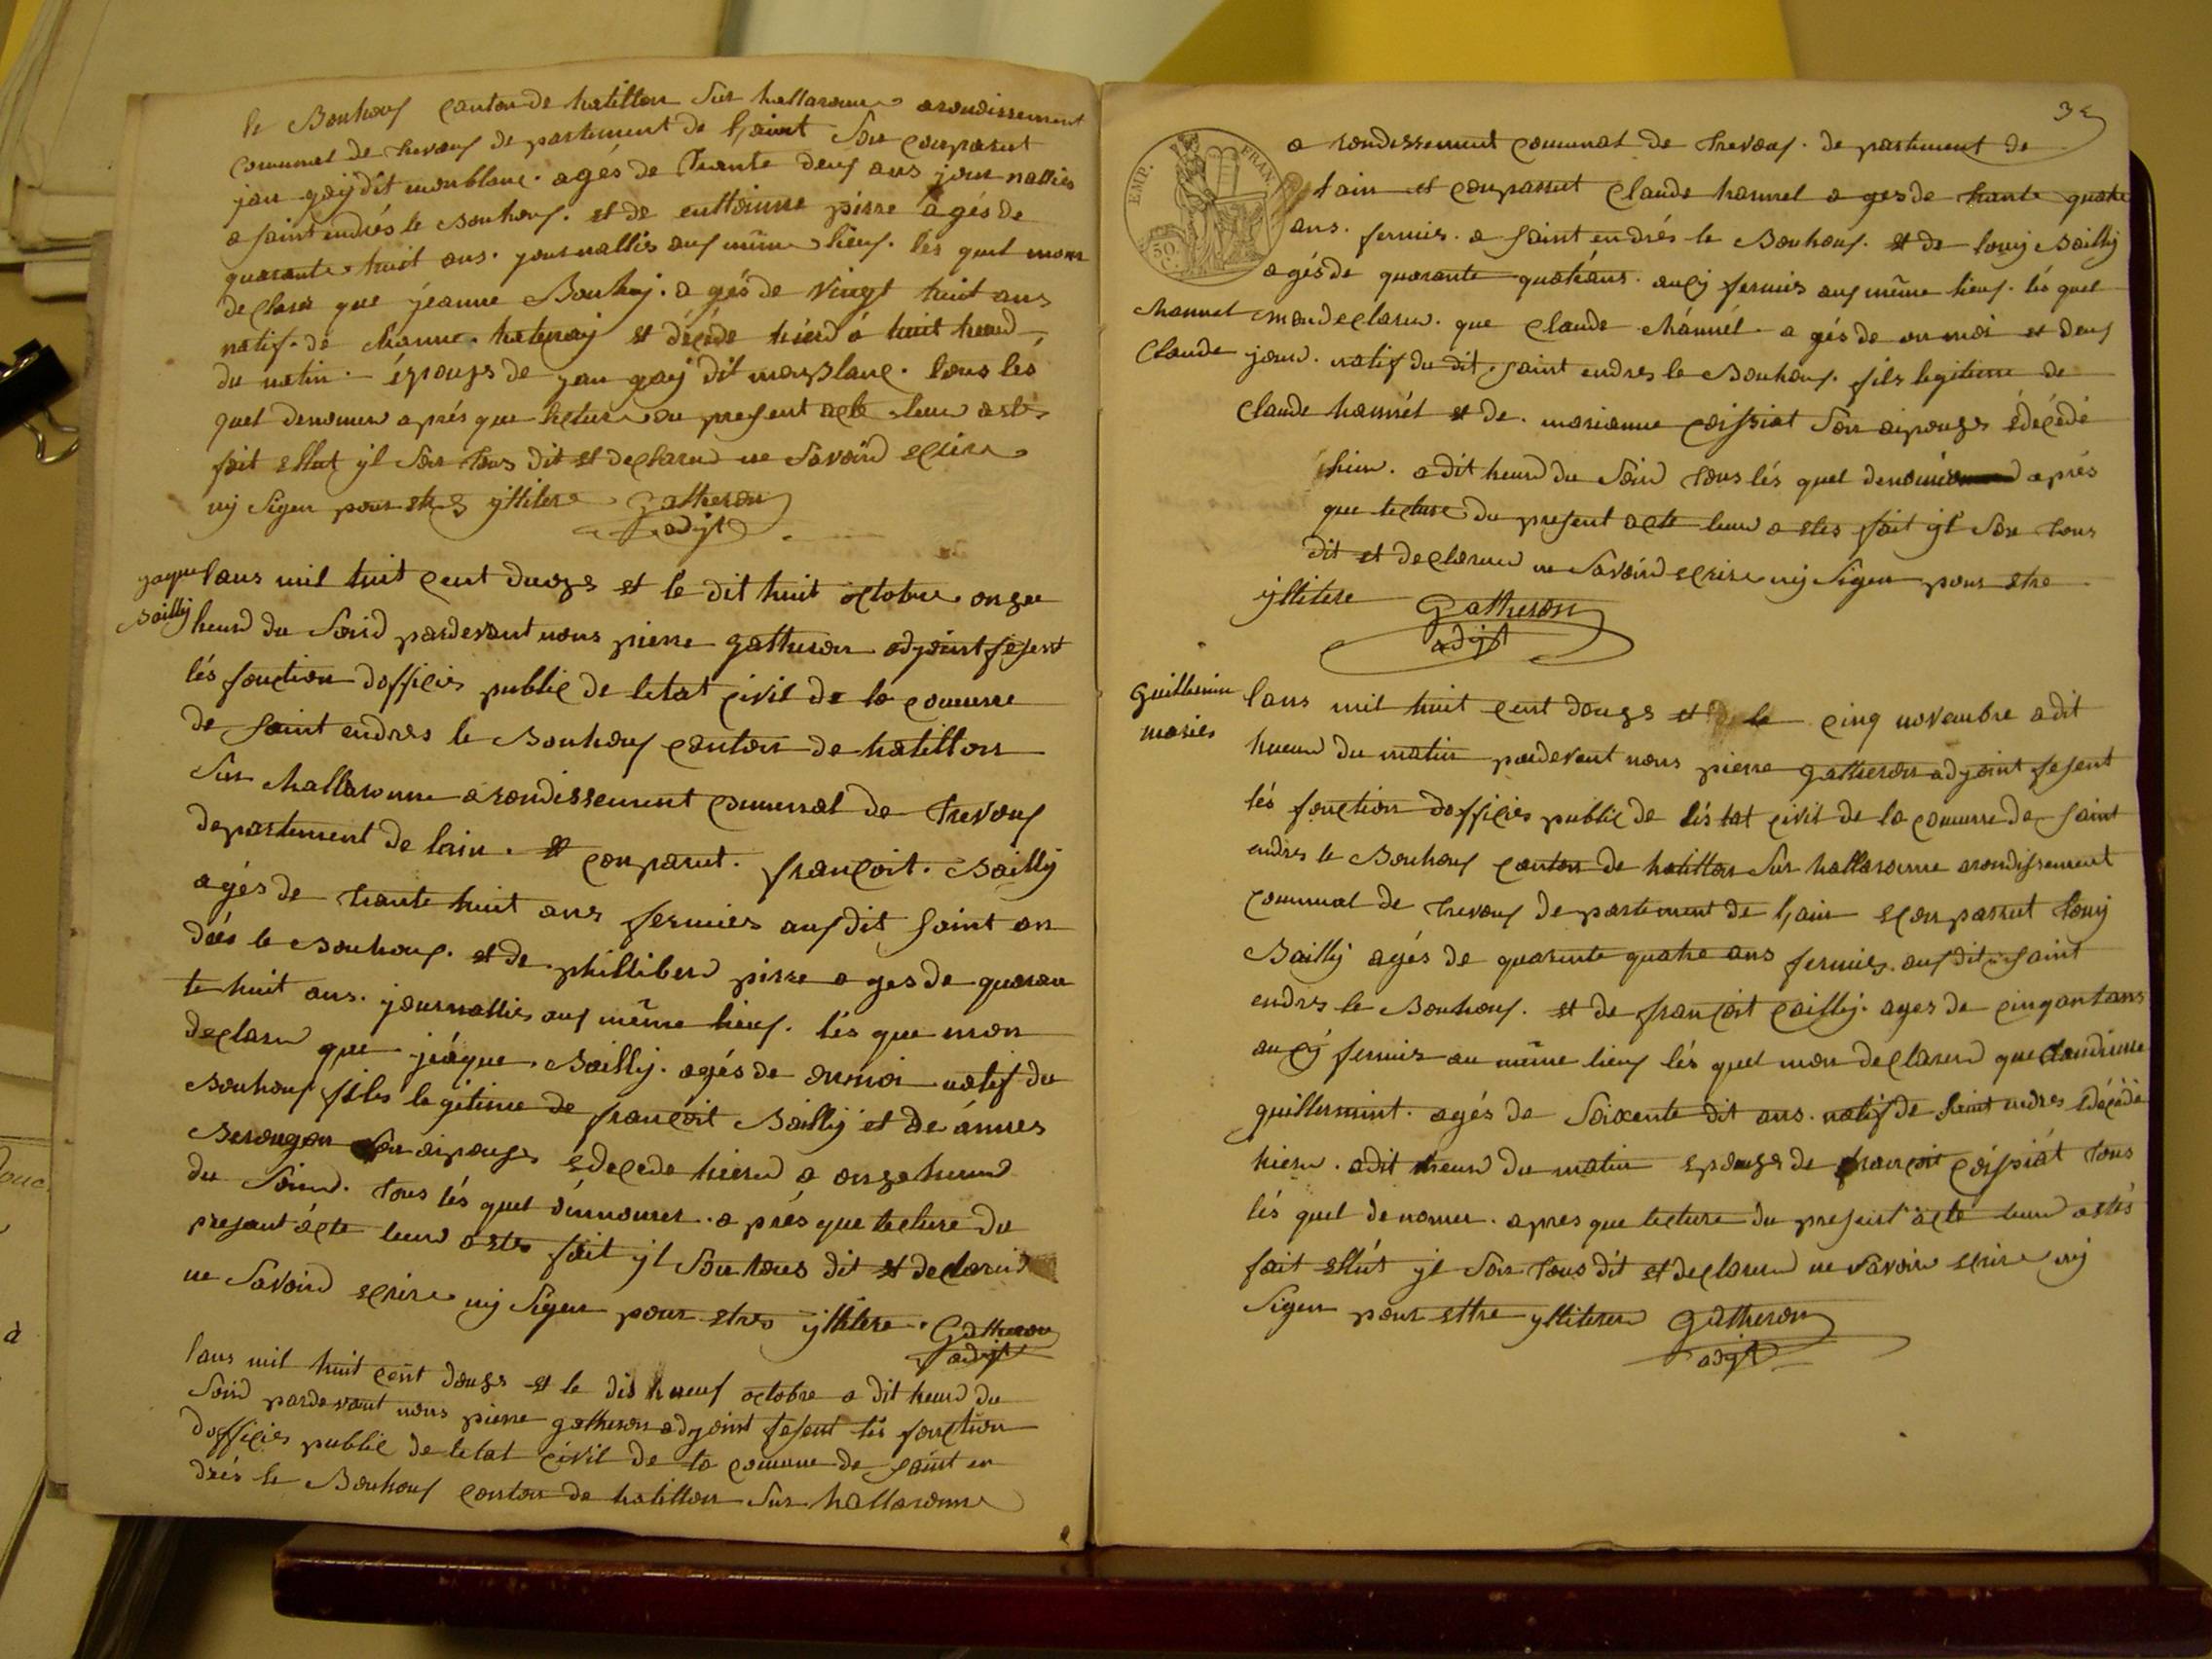 le Bouhouf canton de hatillon Sur hallaronne arondissement
communal de trevouf departement de laint Son conparut
jan gaÿ dit monblanc. agés de trante deuf ans journallier
a saint endrés le Bouhouf. et de enttoinne pirre agés de
quarante huit ans. journallier auf même lieuf. lés quel mon
declaré que jéanne Bouhÿ. agés de vingt huit ans
natif. dé channe. hatenaÿ et décéde hierd á huit heurd
du matin. épouze de jan gaÿ dit monblanc. tous les
quel denomer aprés que lecture du present acte leur astés
fait ettut yl Son tous dit et declarerd ne Savoird ecrire
nÿ Signer pour etres yllitere Gatheron
adjt
jaque
Bailly
lans mil huit cent douze et le dit huit octobre onze
heurd du Soird pardevant nous pierre gatheron adjoint fesent
lés fonction dofficier public de letat civil de la comunne
de saint endres le Bouhouf canton de hatillon
Sur Hallaronne arondissement communal de trevouf
departement de lain. et conparut. françoit. Bailly
agés de trante huit ans fermier auf dit saint an
drés le Bouhouf. et de phillibert pirre ages de quaran
te huit ans. journallier auf même lieuf. lés que mon
declaré que jéaque. Bailly. agés de onmoi natif du
Bouhouf fils legitime de françoit Bailly et de ánnes
Berougon Son aipouze edecede hierd a onze heurd
du Soird. tous lés quel dénnomer. aprés que lecture du
presant ácte leurd astes fait yl Son tous dit et declarerd
ne Savoird ecrire nÿ Signer pour etres yllitere. Gatheron
adjt
lans mil huit cent douze et le dis neuf octobre a dit heurd du
Soird pardevant nous pierre gatheron adjoint fesent lés fonction
dofficier public de letat civil de la comune de saint en
drés le Bouhouf conton de hatillon Sur hallaronne
EMP. FRAN.
50 C.
arondissement communal de trevouf. departement de
lain et conparrut Claude hannel ages de trante quatre
ans. fermier. a saint endrés le Bouhouf. et de louÿ Bailly
agés de quarante quatréans. aucÿ fermier auf même lieuf. lés quel
Channel
Claude
mon declarerd. que Claude chánnél. agés de on moi et deuf
jourd. natif du dit. saint endres le Bouhouf. fils legitime de
Claude hannél et de. marianne coissiat Son aipouze édecédé
hier. a dit heurd du Soird tous lés quel denomer aprés
que lecture du present acte leurd a etes fait yl Son tous
dit et declarerd ne Savoird ecrire nÿ Signer pour etre
yllitere Gatheron
adjt
Guillermin
maries
lans mil huit cent douze et le cinq novembre a dit
heurd du matin pardevent nous pierre gatheron adjoint fesent
lés fonction dofficier public de léstat civil de la comunne de saint
endres le Bouhouf canton de hatillon Sur hallaronne arondissement
communal de trevouf departement de lain econparrut louÿ
Bailly agés de quarente quatre ans fermier. auf dit saint
endres le Bouhouf. et de françoit Cailly. ages de cinqantans
aucÿ fermier au même lieuf lés quel mon declarerd que Claudinne
guillermint. agés de Soixente dit ans. natif de saint endres edécédé
hierd. a dit heurd du matin epouze de françoit coissiát tous
lés quel denomer. apres que lecture du presint ácté leurd astés
fait ettut yl Son tous dit et declarerd ne Savoir ecrire nÿ
Signer pour ettre yllitererd Gatheron
adjt